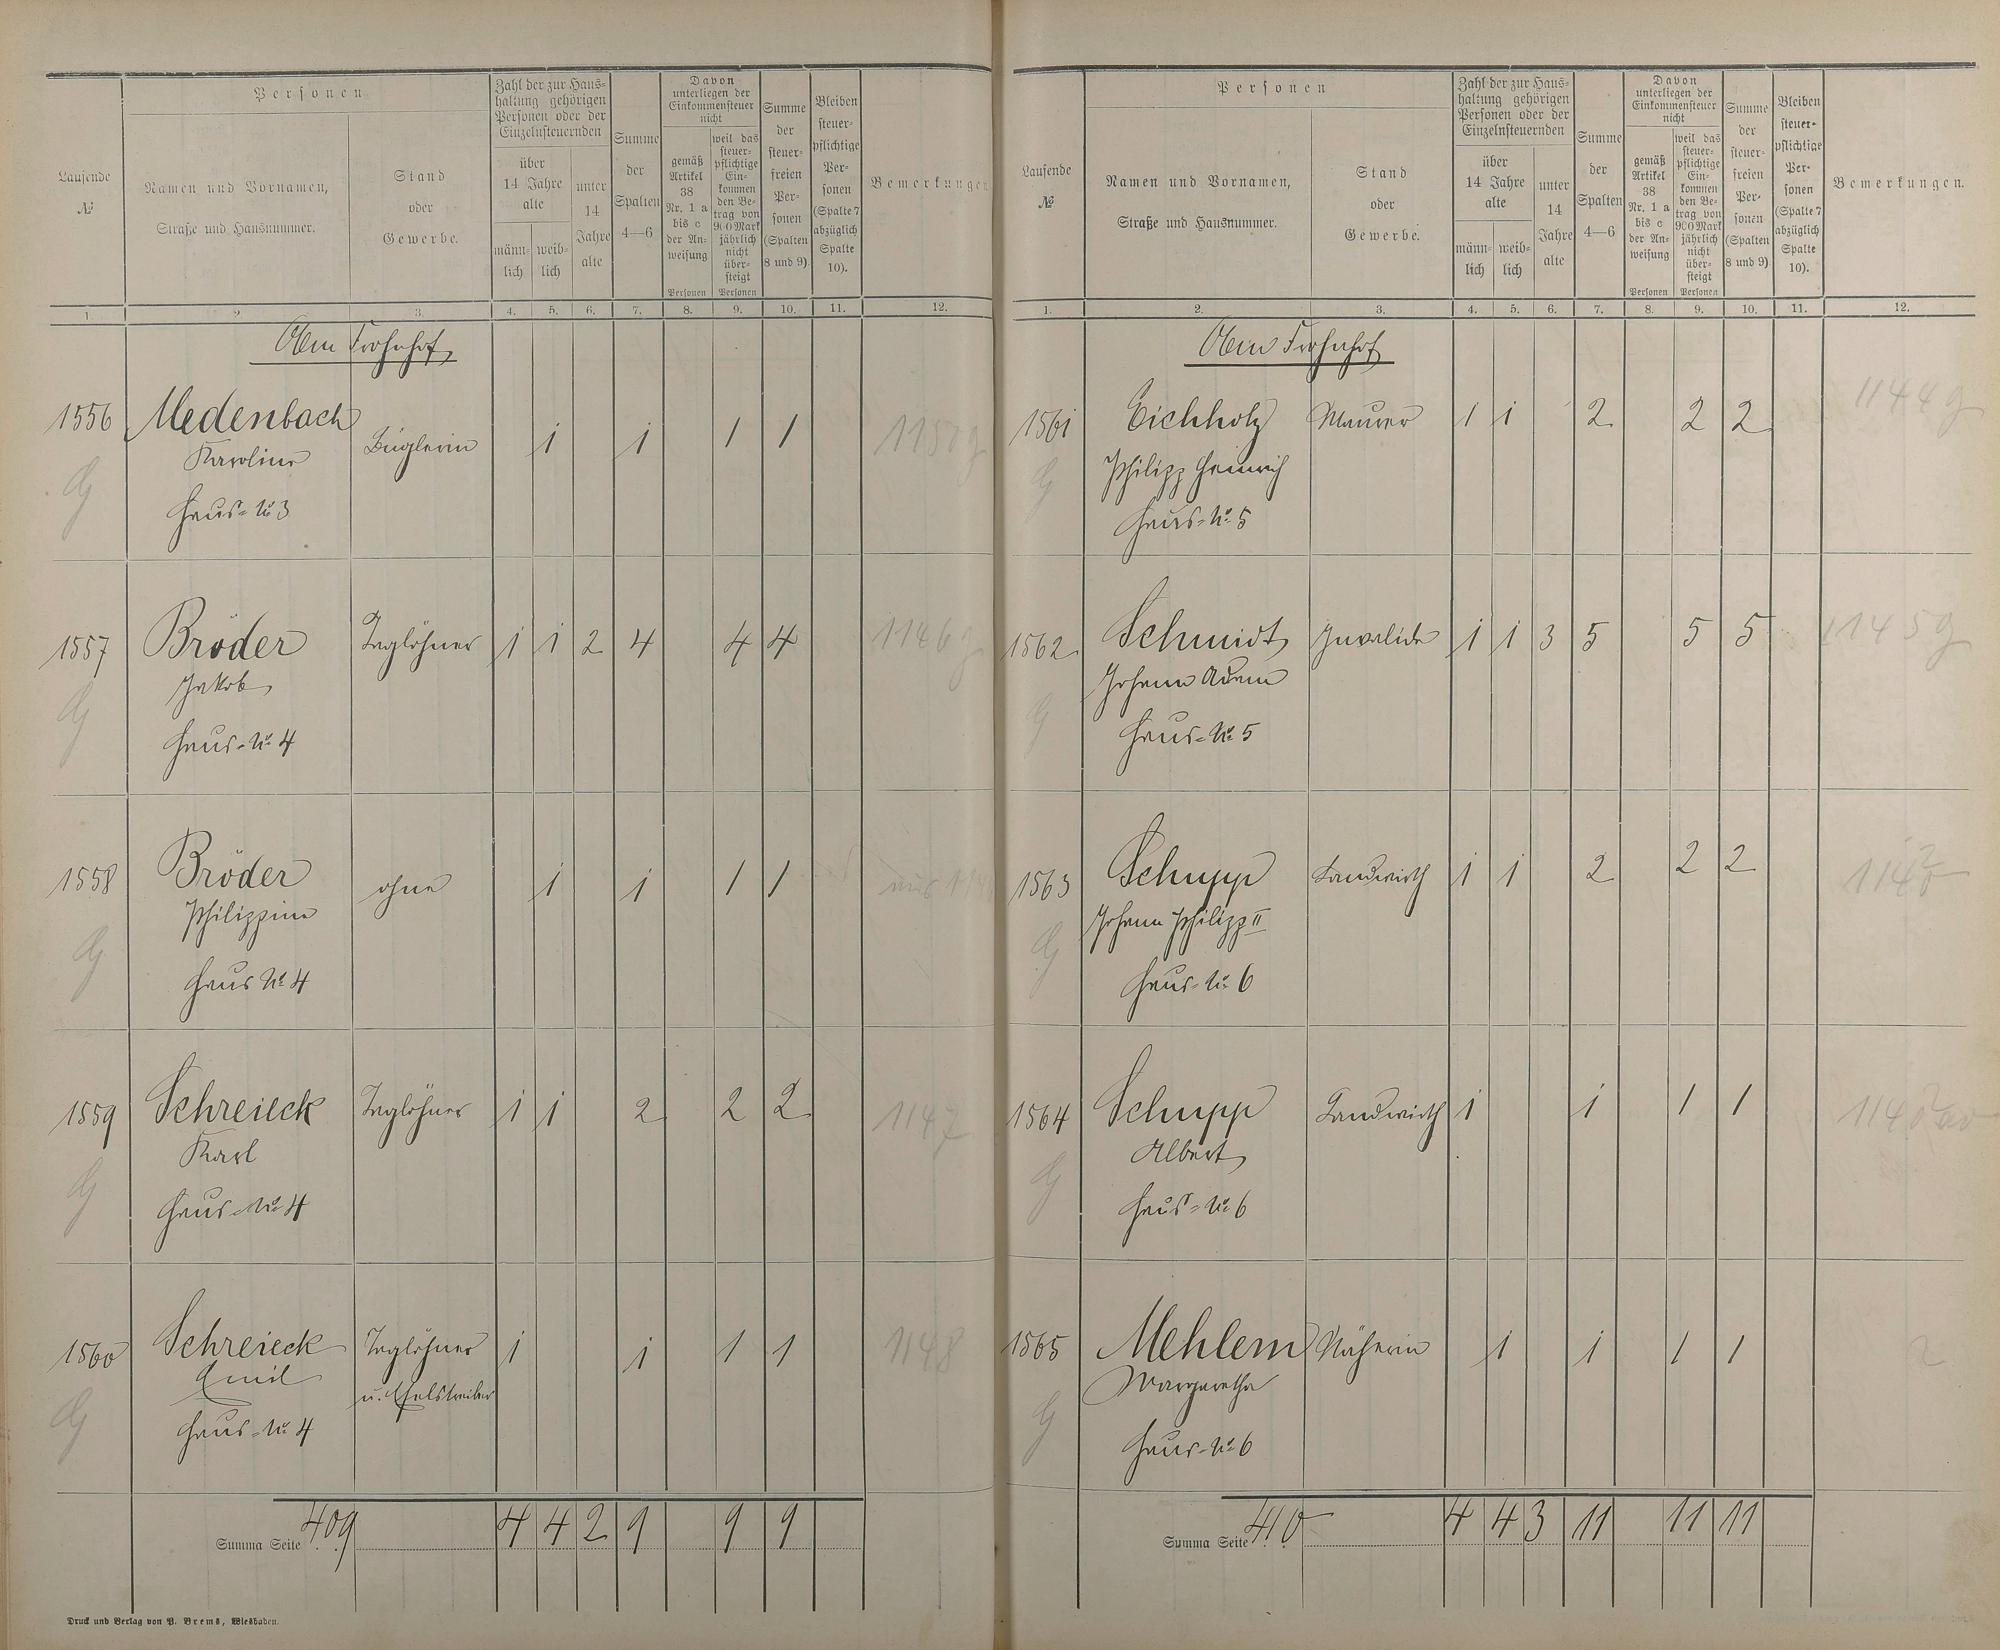 Personen
Zahl der zur Haus-
haltung gehörigen
Personen oder der
Einzelnsteuernden
Davon
unterliegen der
Einkommensteuer
nicht
Laufende
№
Namen und Vornamen,
Straße und Hausnummer.
Stand
oder
Gewerbe.
über
14 Jahre
alte
männ-
lich
weib-
lich
unter
14
Jahre
alte
Summe
der
Spalten
4—6
gemäß
Artikel
38
Nr. 1 a
bis c
der An-
weisung
Personen
weil das
steuer-
pflichtige
Ein-
kommen
den Be-
trag von
900 Mark
jährlich
nicht
über-
steigt
Personen
Summe
der
steuer-
freien
Per-
sonen
(Spalten
8 und 9)
Bleiben
steuer-
pflichtige
Per-
sonen
(Spalte 7
abzüglich
Spalte
10).
Bemerkungen
1. 2. 3. 4. 5. 6. 7. 8. 9. 10. 11. 12.
Frohnhof
1556 Medenbach Büglerin 1 1 1 1
Karoline
Haus-№ 3
1557 Bröder Taglöhner 1 1 2 4 4 4 1146
Jakob
Haus-№ 4
1558 Bröder ohne 1 1 1 1
Philippine
Haus № 4
1559 Schreieck Taglöhner 1 1 2 2 2 1147
Karl
Haus-№ 4
1560 Schreieck Taglöhner 1 1 1 1 1148
Emil u. Eselstreiber
Haus-№ 4
Summa Seite 409 4 4 2 9 9 9
Druck und Verlag von P. Brems, Wiesbaden.
Personen
Zahl der zur Haus-
haltung gehörigen
Personen oder der
Einzelnsteuernden
Davon
unterliegen der
Einkommensteuer
nicht
Laufende
№
Namen und Vornamen,
Straße und Hausnummer.
Stand
oder
Gewerbe.
über
14 Jahre
alte
männ-
lich
weib-
lich
unter
14
Jahre
alte
Summe
der
Spalten
4—6
gemäß
Artikel
38
Nr. 1 a
bis c
der An-
weisung
Personen
weil das
steuer-
pflichtige
Ein-
kommen
den Be-
trag von
900 Mark
jährlich
nicht
über-
steigt
Personen
Summe
der
steuer-
freien
Per-
sonen
(Spalten
8 und 9)
Bleiben
steuer-
pflichtige
Per-
sonen
(Spalte 7
abzüglich
Spalte
10).
Bemerkungen.
1. 2. 3. 4. 5. 6. 7. 8. 9. 10. 11. 12.
Frohnhof
1561 Eichholz Maurer 1 1 2 2 2 1144
Philipp Heinrich
Haus-№ 5
1562 Schmidt Invalide 1 1 3 5 5 5 1145
Johann Adam
Haus-№ 5
1563 Schupp Landwirth 1 1 2 2 2
Johann Philipp II
Haus-№ 6
1564 Schupp Landwirth 1 1 1 1
Albert
Haus-№ 6
1565 Mehlem Näherin 1 1 1 1
Margaretha
Haus-№ 6
Summa Seite 410 4 4 3 11 11 11